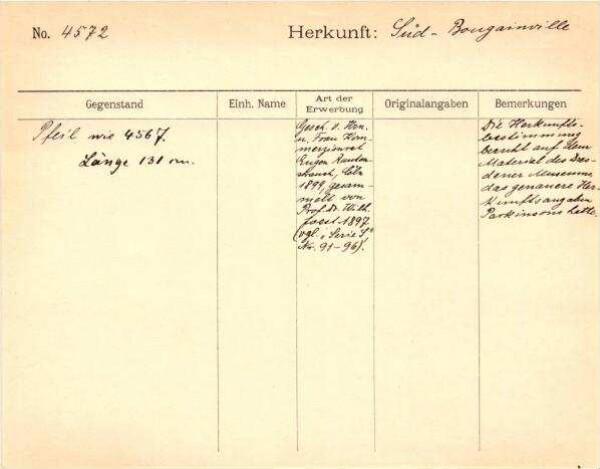 No. 4572
Herkunft: Süd-Bougainville
Gegenstand
Einh. Name
Art der Erwerbung
Originalangaben
Bemerkungen
Pfeil wie 4567.
Länge 131 cm.
Gesch. v. Hrn.
u. Frau Kom-
merzienrat
Eugen Rauten-
strauch, Cöln
1899, gesam-
melt von
Prof. Dr. Wilh.
Joest 1897
(vgl. "Serie S"
Nr. 91-96).
Die Herkunfts-
bestimmung
beruht auf dem
Material des Dres-
dener Museums,
das genauere Her-
kunftsangaben
Parkinsons hatte.